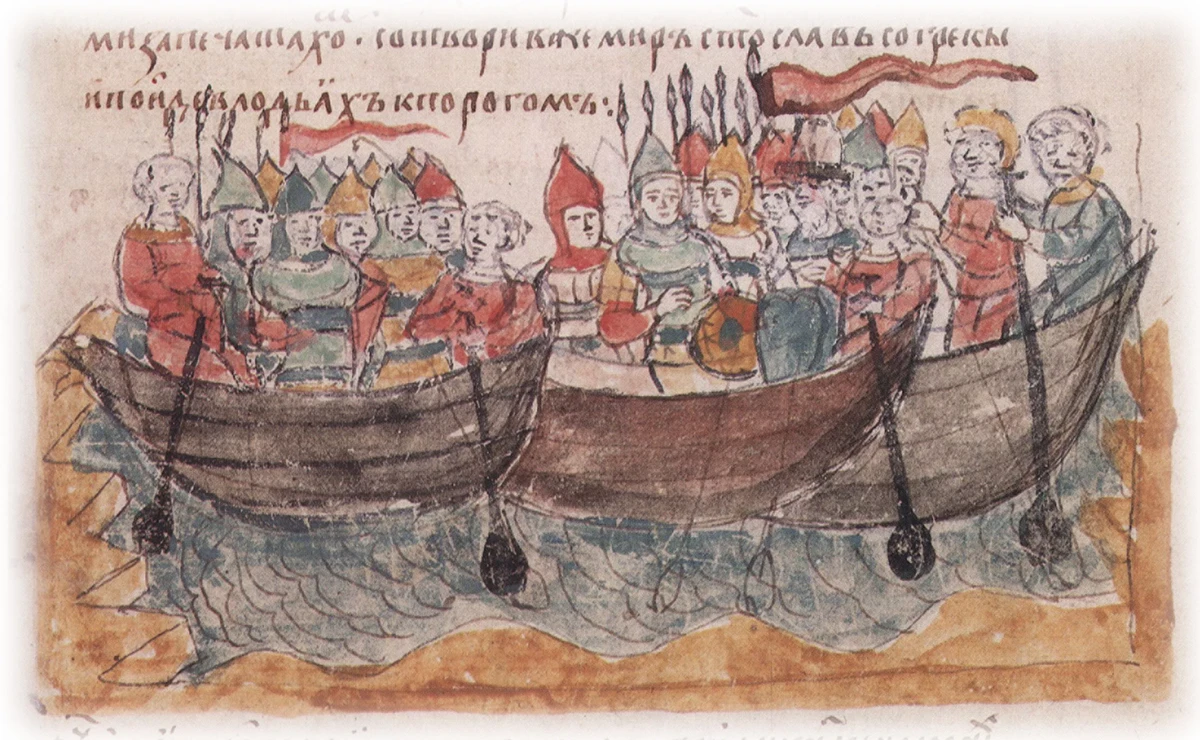 ми запечатахо · сотворивже миръ стославъ со грекы
и поиде в лодьѧхъ к порогомъ:·